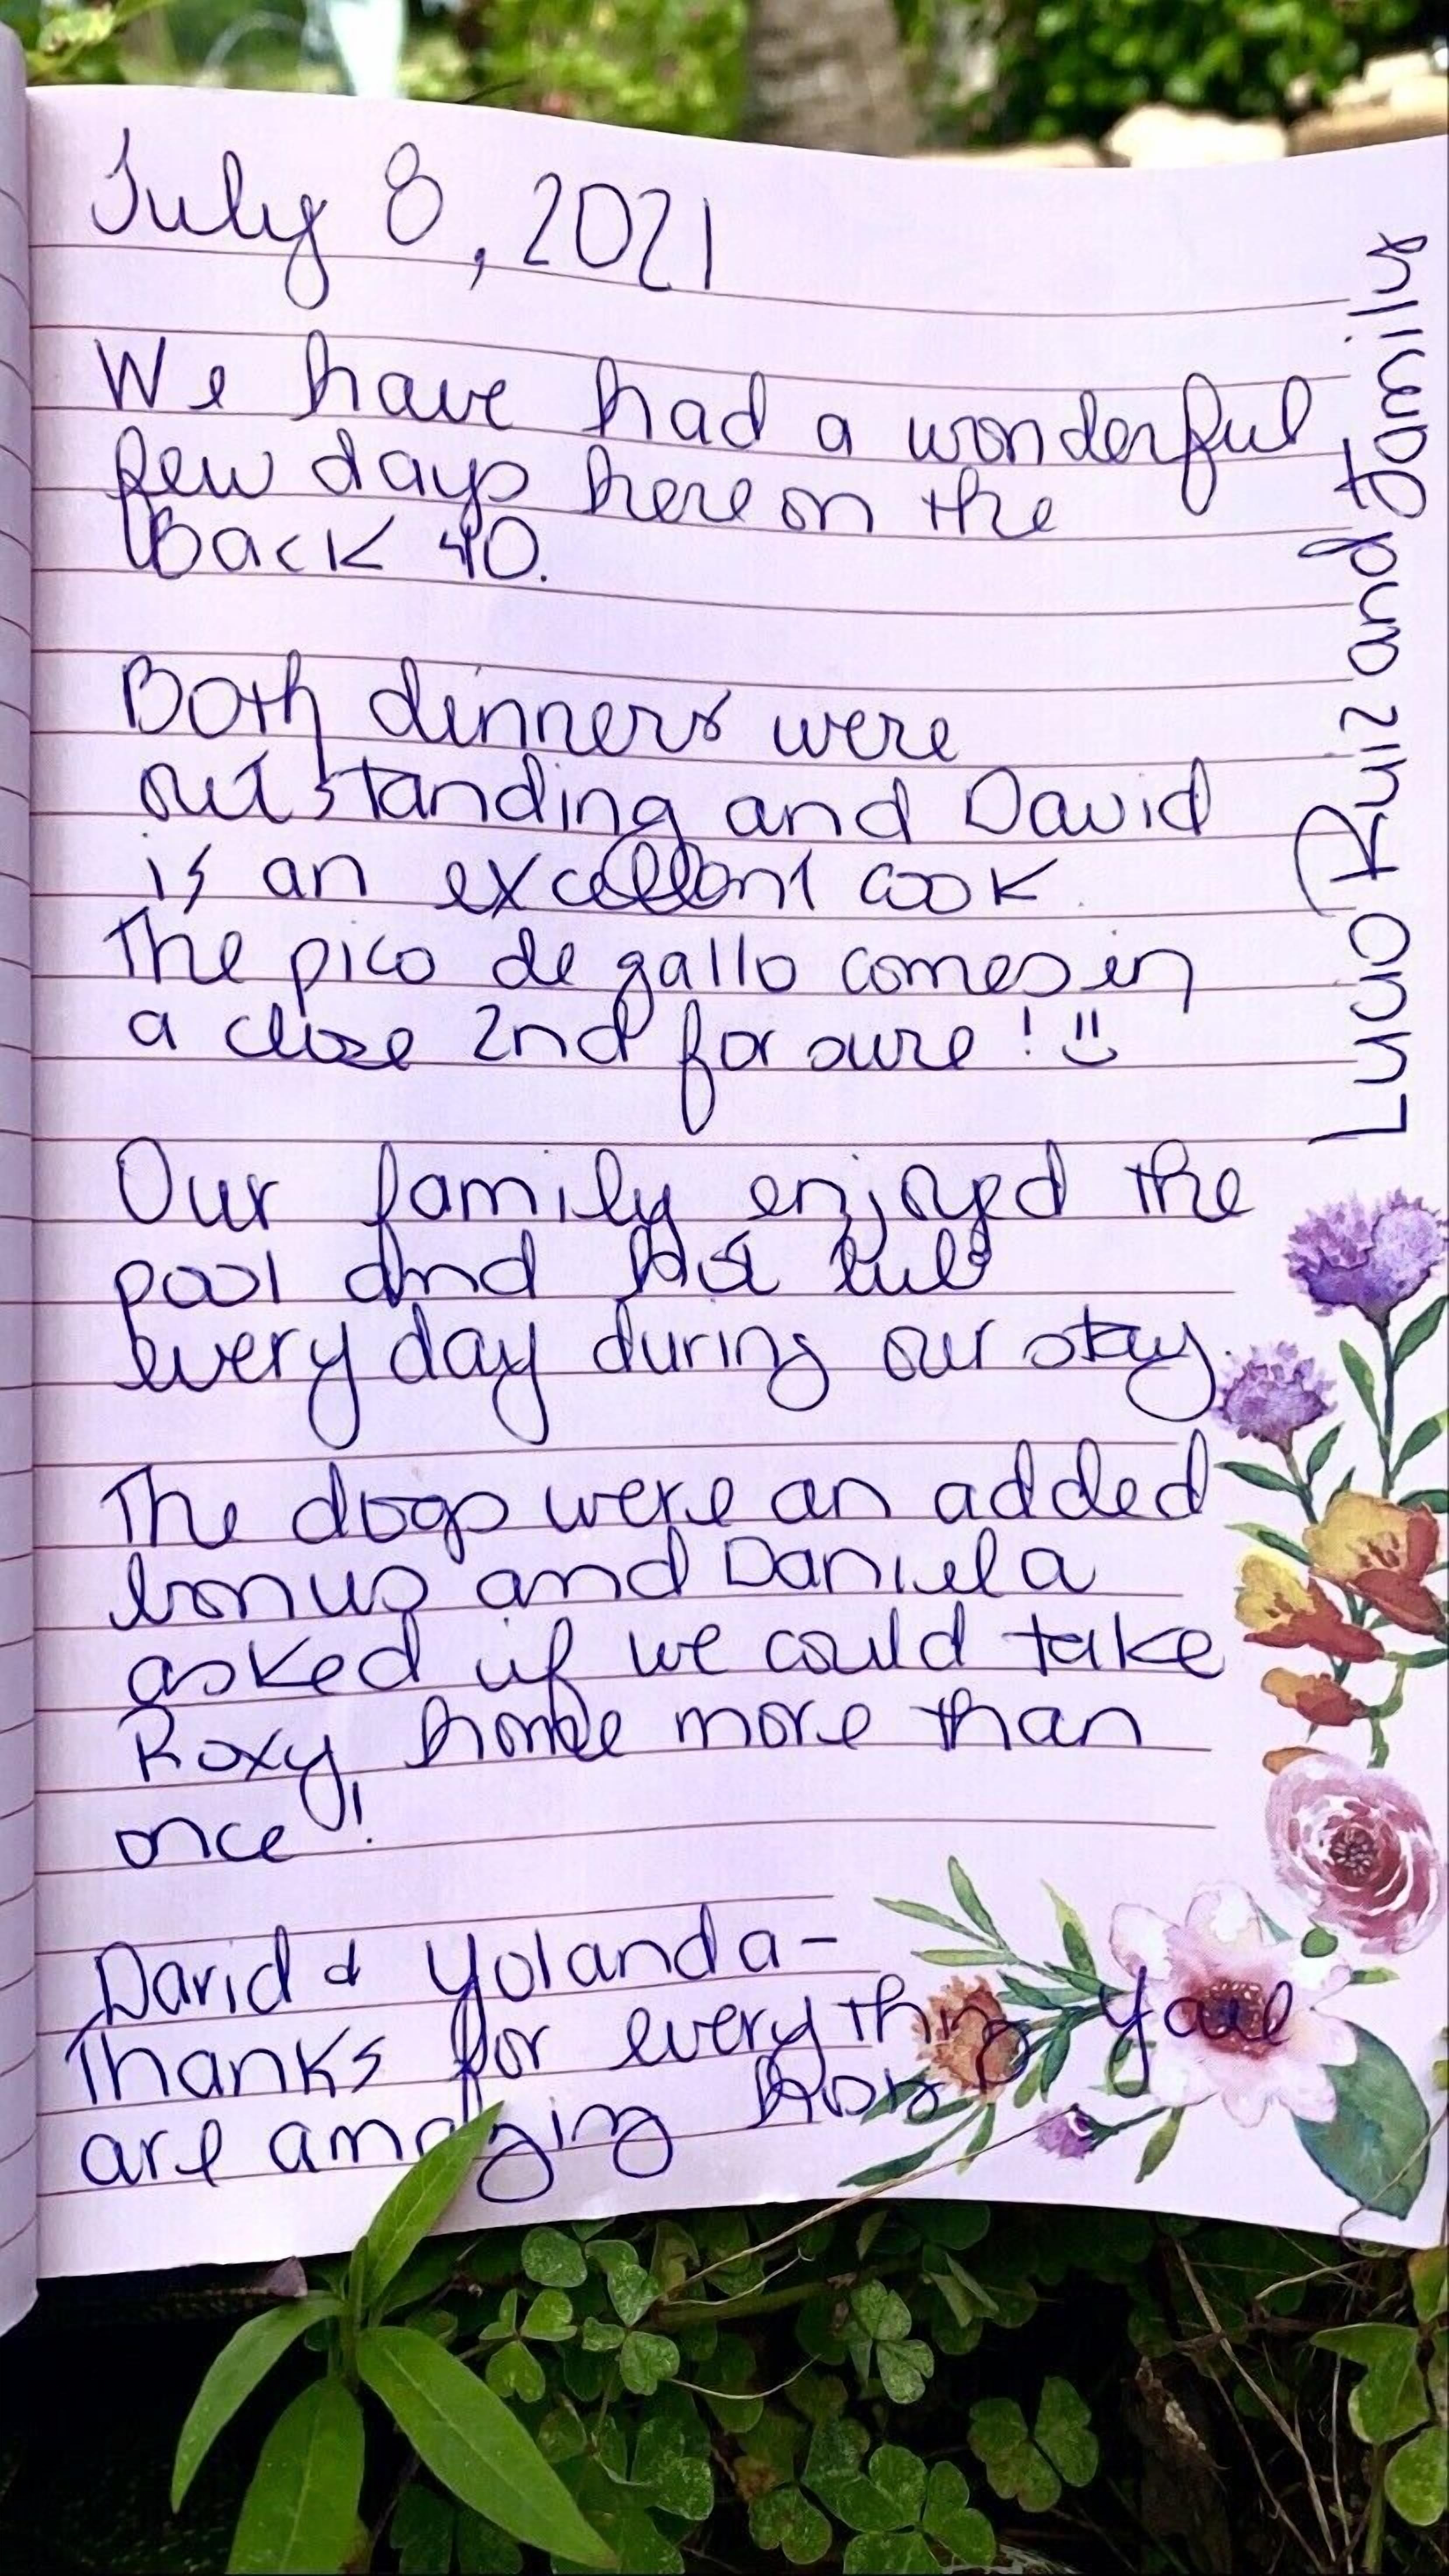 July 8, 2021
We have had a wonderful
few days here on the
back 40.
Both dinners were
outstanding and David
is an excellent cook.
The pico de gallo comes in
a close 2nd for sure!
Our family enjoyed the
pool and hot tub
every day during our stay.
The dogs were an added
bonus and Daniela
asked if we could take
Roxy home more than
once!
David & Yolanda-
Thanks for everything
are amazing
Ruiz and Family